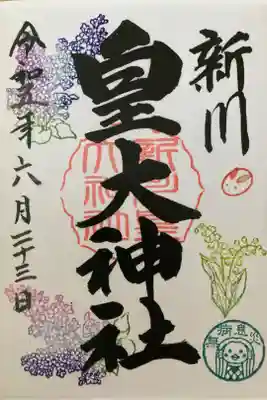 新川
皇大神社
令和五年六月二十三日